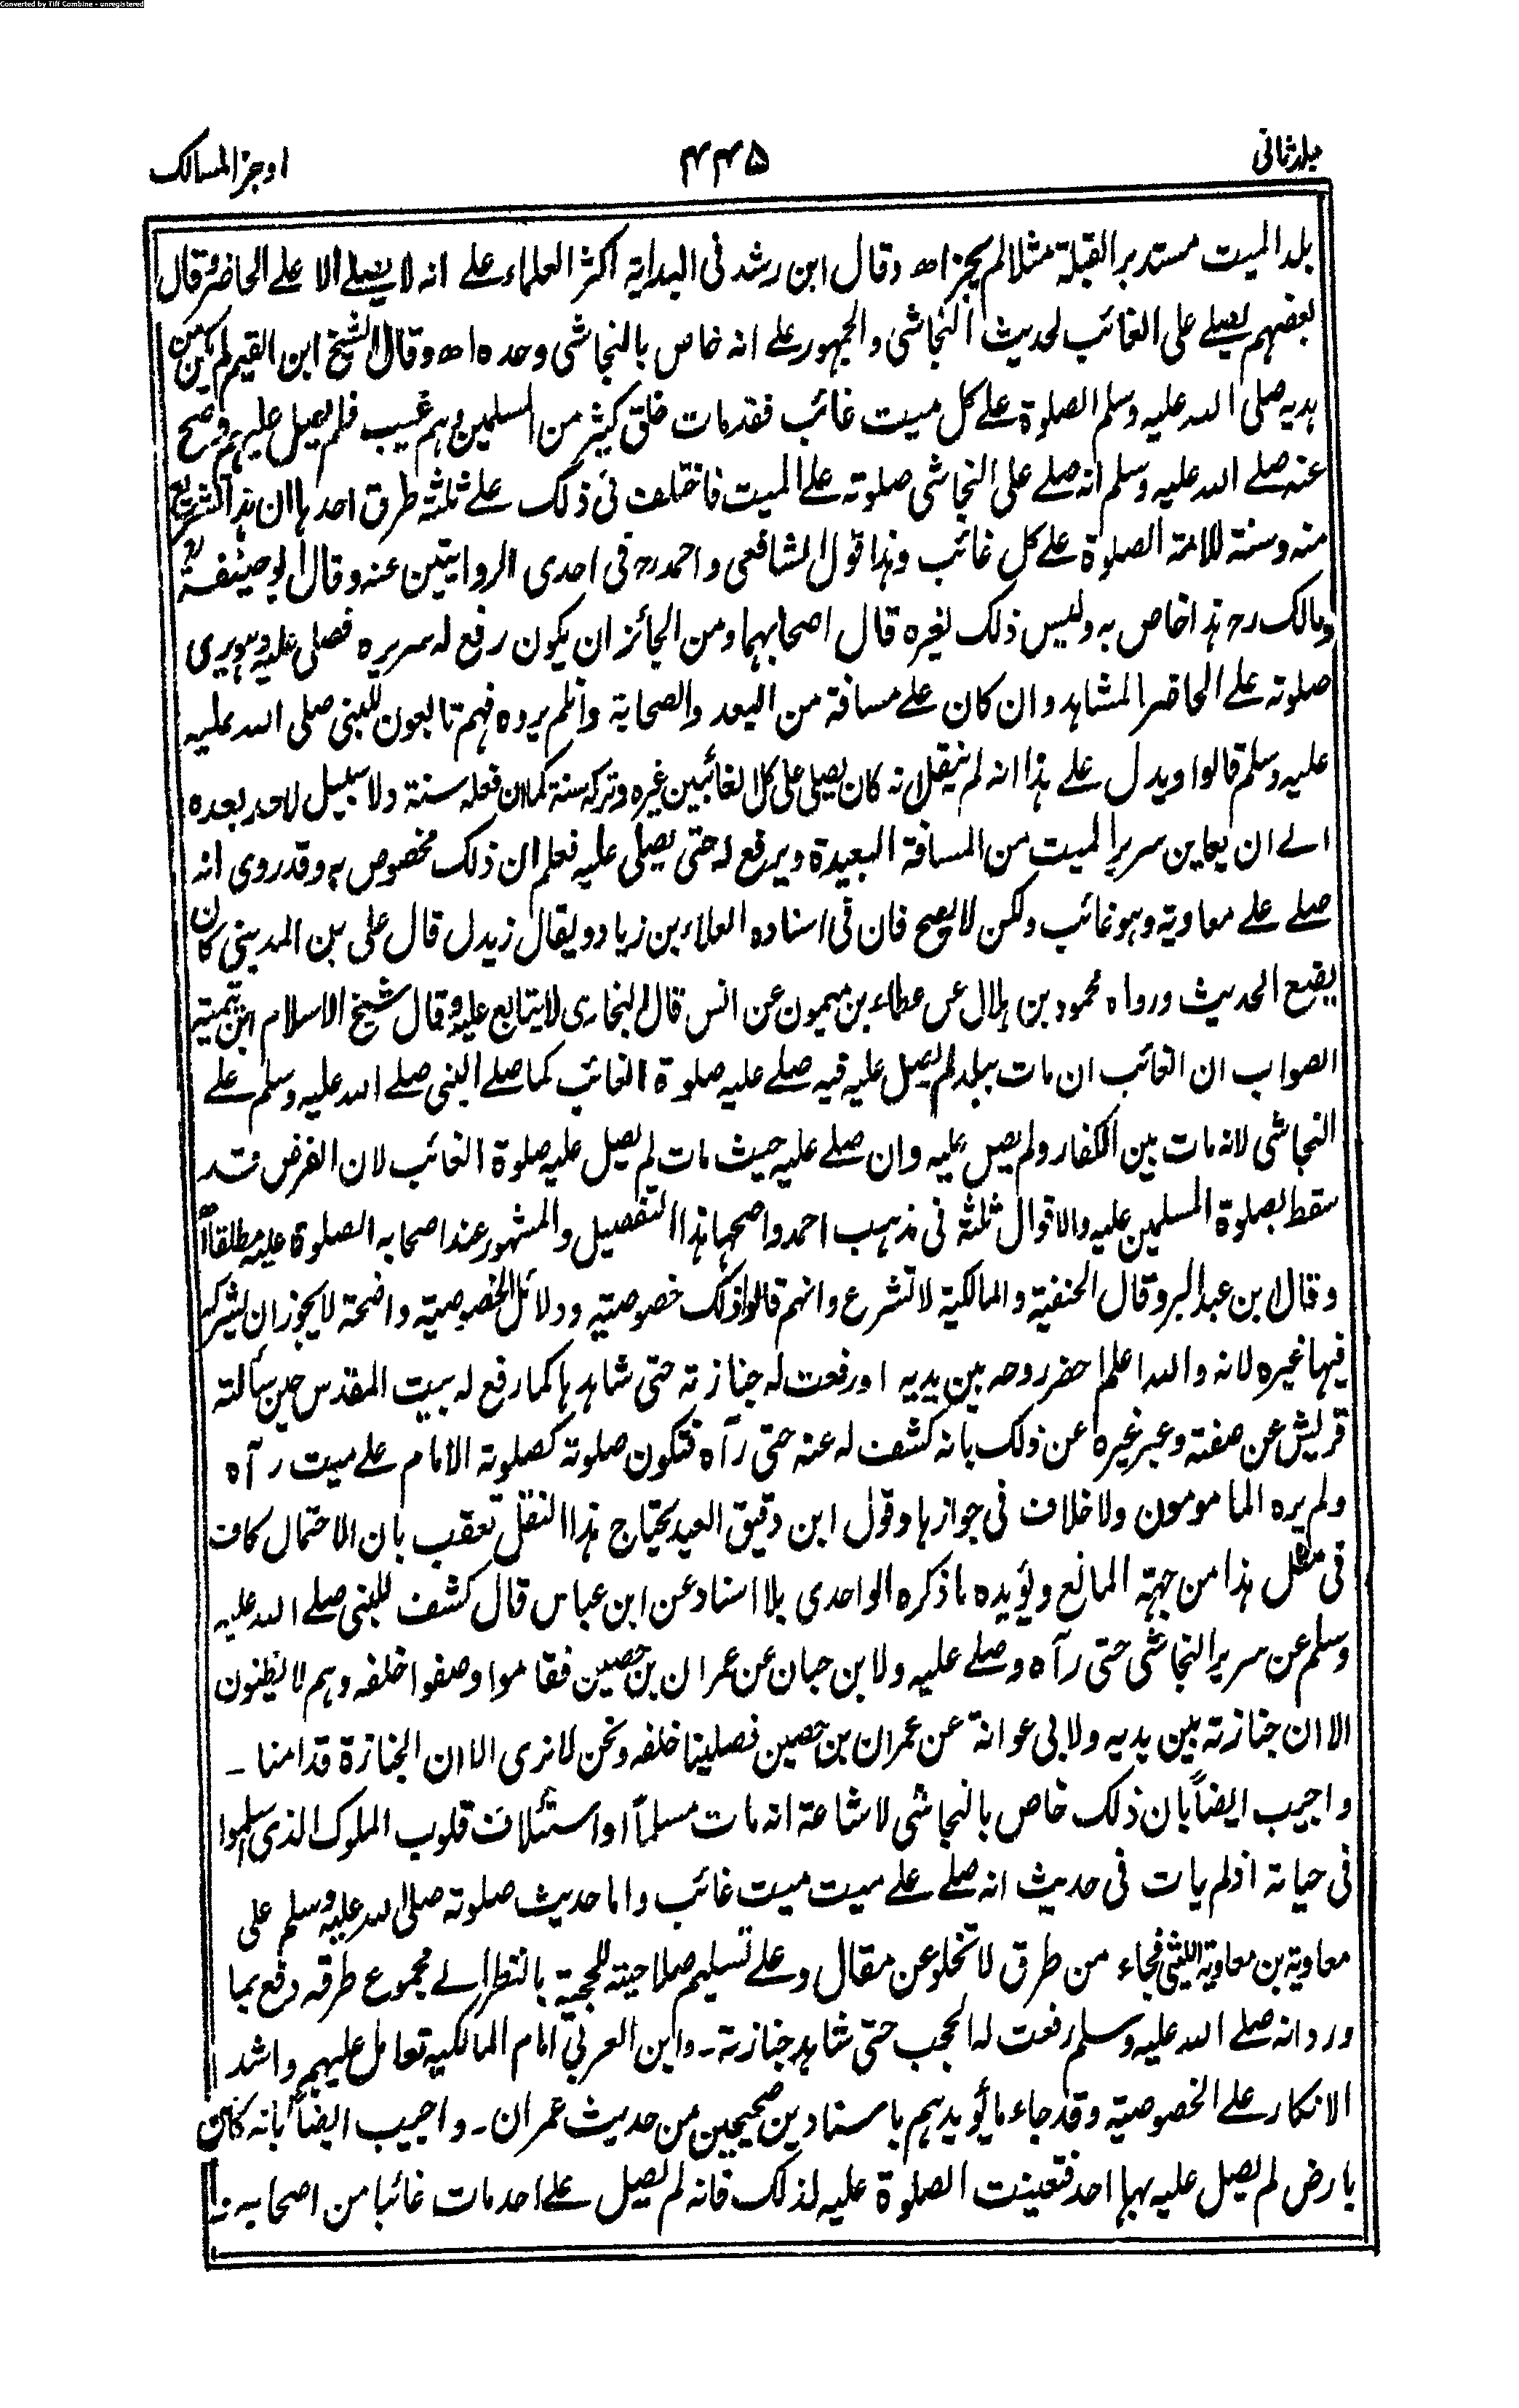 Converted by Tiff Combine - unregistered
جلد ثانی
۴۴۵
اوجز المسالک
بلد الميت مستدبر القبلة مثلا لم يجز اھ وقال ابن رشد فی البداية اکثر العلماء علے انه لا يصلے الا علے الحاضر وقال
بعضهم يصلے علی الغائب لحديث النجاشی والجمهور علے انه خاص بالنجاشی وحده اھ وقال الشيخ ابن القيم لم يکن من
هديه صلی الله عليه وسلم الصلوة علے کل ميت غائب فقد مات خلق کثير من المسلمين وهم غيب فلم يصل عليهم وصح
عنه صلے الله عليه وسلم انه صلے علی النجاشی صلوته علے الميت فاختلف فی ذلک علے ثلثة طرق احدها ان هذا تشريع
منه وسنة للامة الصلوة علے کل غائب وهذا قول الشافعی واحمد رح فی احدی الروايتين عنه وقال ابو حنيفة رح
ومالک رح هذا خاص به وليس ذلک لغيره قال اصحابهما ومن الجائز ان يکون رفع له سريره فصلی عليه وهو يری
صلوته علے الحاضر المشاهد وان کان علے مسافة من البعد والصحابة وان لم يروه فهم تابعون للنبی صلی الله عليه
عليه وسلم قالوا ويدل علے هذا انه لم ينقل انه کان يصلی علی کل الغائبين غيره وترکه سنة کما ان فعله سنة ولا سبيل لاحد بعده
الے ان يعاين سرير الميت من المسافة البعيدة ويرفع له حتی يصلی عليه فعلم ان ذلک مخصوص به وقد روی انه
صلے علے معاوية وهو غائب ولکن لا يصح فان فی اسناده العلاء بن زياد ويقال زيدل قال علی بن المدينی کان
يضع الحديث ورواه محمود بن هلال عن عطاء بن ميمون عن انس قال البخاری لا يتابع عليه وقال شيخ الاسلام ابن تيمية
الصواب ان الغائب ان مات ببلد لم يصل عليه فيه صلے عليه صلوة الغائب کما صلے النبی صلے الله عليه وسلم علے
النجاشی لانه مات بين الکفار ولم يصل عليه وان صلے عليه حيث مات لم يصل عليه صلوة الغائب لان الفرض قد
سقط بصلوة المسلمين عليه والاقوال ثلثة فی مذهب احمد واصحها هذا التفصيل والمشهور عند اصحابه الصلوة عليه مطلقاً اھ
وقال ابن عبد البر وقال الحنفية والمالکية لا تشرع وانهم قالوا ذلک خصوصية ودلائل الخصوصية واضحة لا يجوز ان يشرکه
فيها غيره لانه والله اعلم احضر روحه بين يديه او رفعت له جنازته حتی شاهدها کما رفع له بيت المقدس حين سألته
قريش عن صفته وعبر غيره عن ذلک بانه کشف له عنه حتی رآه فتکون صلوته کصلوته الامام علے ميت رآه
ولم يره المامومون ولا خلاف فی جوازها وقول ابن دقيق العيد يحتاج هذا النقل تعقب بان الاحتمال کاف
فی مثل هذا من جهة المانع ويؤيده ما ذکره الواحدی بلا اسناد عن ابن عباس قال کشف للنبی صلے الله عليه
وسلم عن سرير النجاشی حتی رآه وصلے عليه ولابن حبان عن عمران بن حصين فقاموا وصفوا خلفه وهم لا يظنون
الا ان جنازته بين يديه ولابی عوانة عن عمران بن حصين فصلينا خلفه ونحن لا نری الا ان الجنازة قدامنا ـ
واجيب ايضاً بان ذلک خاص بالنجاشی لاشاعة انه مات مسلماً او استئلاف قلوب الملوک الذی اسلموا
فی حياته اذ لم يات فی حديث انه صلے علے ميت ميت غائب واما حديث صلوته صلی الله عليه وسلم علی
معاوية بن معاوية الليثی فجاء من طرق لا تخلو عن مقال وعلے تسليم صلاحيته للحجية بالنظر الے مجموع طرقه دفع بما
ورد انه صلے الله عليه وسلم رفعت له الحجب حتی شاهد جنازته ـ وابن العربی امام المالکيه تعامل عليهم واشد
الانکار علے الخصوصية وقد جاء ما يؤيدهم باسنادين صحيحين من حديث عمران ـ واجيب ايضاً بانه کان
بارض لم يصل عليه بها احد فتعينت الصلوة عليه لذلک فانه لم يصل علے احد مات غائبا من اصحابه